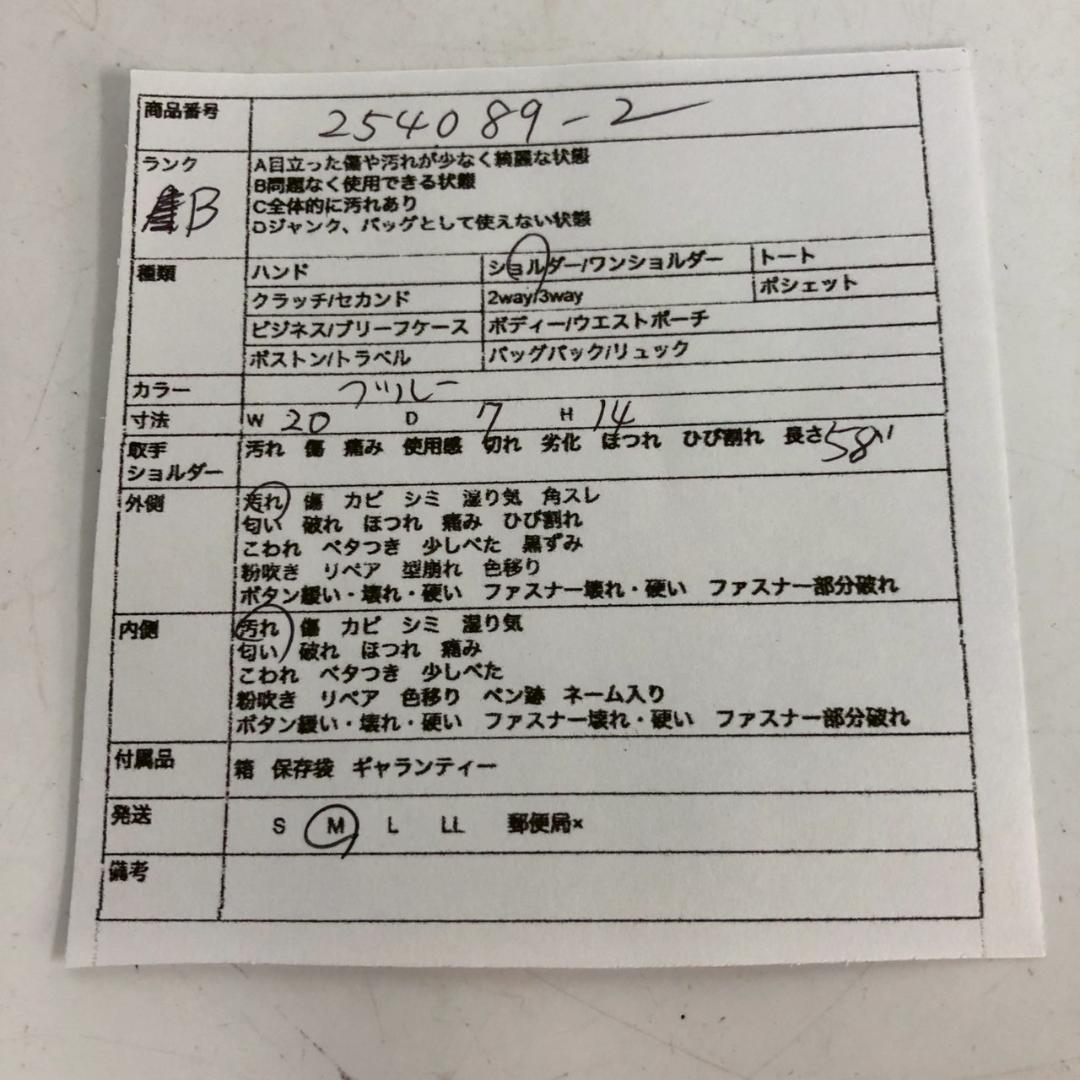 商品番号 254089-2
ランク B
A目立った傷や汚れが少なく綺麗な状態
B問題なく使用できる状態
C全体的に汚れあり
Dジャンク、バッグとして使えない状態
種類 ハンド ショルダー/ワンショルダー トート
クラッチ/セカンド 2way/3way ポシェット
ビジネス/ブリーフケース ボディー/ウエストポーチ
ボストン/トラベル バッグパック/リュック
カラー ブルー
寸法 W 20 D 7 H 14
取手 汚れ 傷 痛み 使用感 切れ 劣化 ほつれ ひび割れ 長さ58
ショルダー
外側 汚れ 傷 カビ シミ 湿り気 角スレ
匂い 破れ ほつれ 痛み ひび割れ
こわれ ベタつき 少しべた 黒ずみ
粉吹き リペア 型崩れ 色移り
ボタン緩い・壊れ・硬い ファスナー壊れ・硬い ファスナー部分破れ
内側 汚れ 傷 カビ シミ 湿り気
匂い 破れ ほつれ 痛み
こわれ ベタつき 少しべた
粉吹き リペア 色移り ペン跡 ネーム入り
ボタン緩い・壊れ・硬い ファスナー壊れ・硬い ファスナー部分破れ
付属品 箱 保存袋 ギャランティー
発送 S M L LL 郵便局×
備考